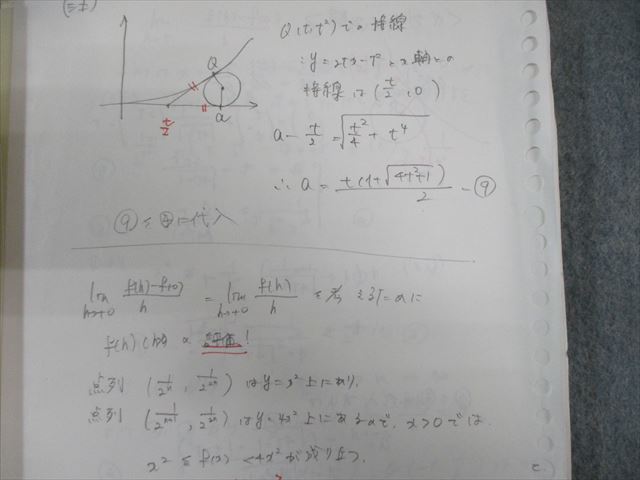 Q(t, t²)での接線
: y = 2tx - t² とx軸との
接線は (t/2, 0)
Q
t/2
a
a - t/2 = √(t²/4 + t⁴)
∴ a = t(1+√(4t²+1))/2 - ⑨
⑨を⑧に代入
lim h→+0 (f(h)-f(0))/h = lim h→+0 f(h)/h を考えるために
f(h)
評価!
点列 (1/2ⁿ, 1/2²ⁿ) はy=x²上にあり,
点列 (1/2ⁿ⁺¹, 1/2²ⁿ) はy=4x²上にあるので, x>0では,
x² ≦ f(x) < 4x² が成り立つ.